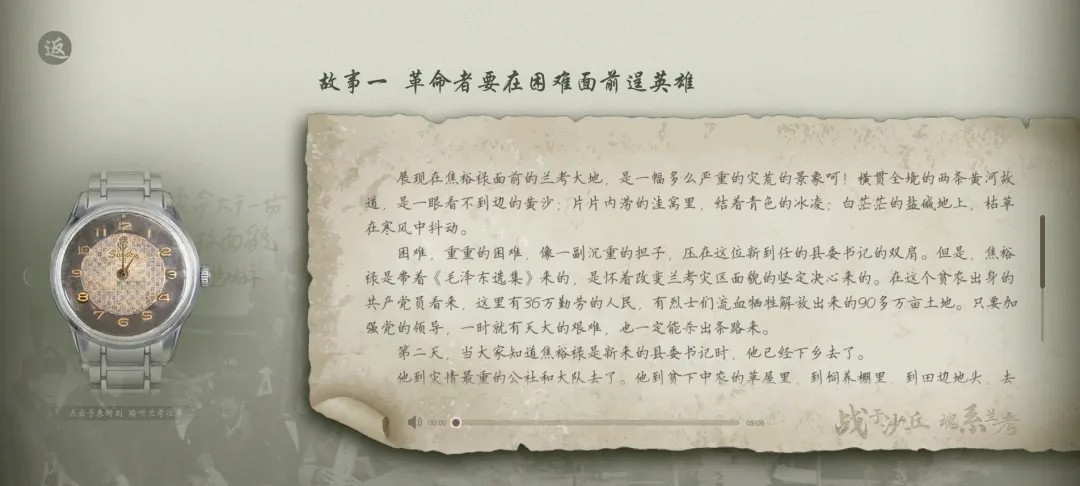 返
故事一 革命者要在困难面前逞英雄
展现在焦裕禄面前的兰考大地,是一幅多么严重的灾荒的景象呵!横贯全境的两条黄河故
道,是一眼看不到边的黄沙;片片内涝的洼窝里,结着青色的冰凌;白茫茫的盐碱地上,枯草
在寒风中抖动。
困难,重重的困难,像一副沉重的担子,压在这位新到任的县委书记的双肩。但是,焦裕
禄是带着《毛泽东选集》来的,是怀着改变兰考灾区面貌的坚定决心来的。在这个贫农出身的
共产党员看来,这里有36万勤劳的人民,有烈士们流血牺牲解放出来的90多万亩土地。只要加
强党的领导,一时就有天大的艰难,也一定能杀出条路来。
第二天,当大家知道焦裕禄是新来的县委书记时,他已经下乡去了。
他到灾情最重的公社和大队去了。他到贫下中农的草屋里,到饲养棚里,到田边地头,去
12
1
2
3
4
5
6
7
8
9
10
11
点击手表时刻
00:00
09:06
战于沙丘 魂系兰考